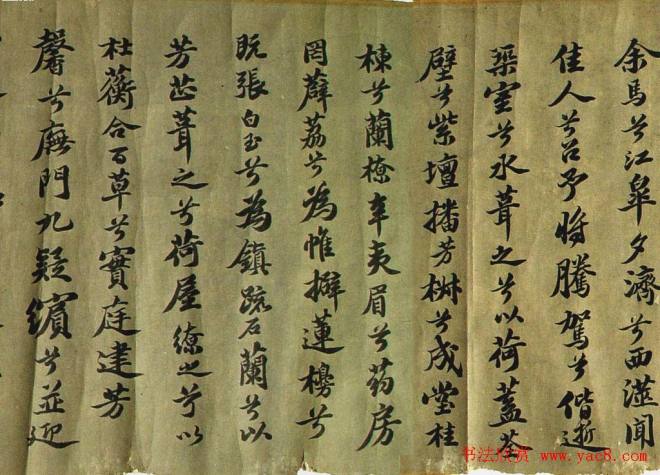 余馬兮江皋夕濟兮西澨聞
佳人兮召予將騰駕兮偕逝
渠室兮水葺之兮以荷蓋荃
壁兮紫壇播芳椒兮成堂桂
棟兮蘭橑辛夷眉兮药房
罔薜荔兮為帷擗蓮櫋兮
既張白玉兮為鎮疏石蘭兮以
芳芷葺之兮荷屋繚之兮以
杜蘅合百草兮實庭建芳
馨兮廡門九疑繽兮並迎
书法欣赏
www.yac8.com